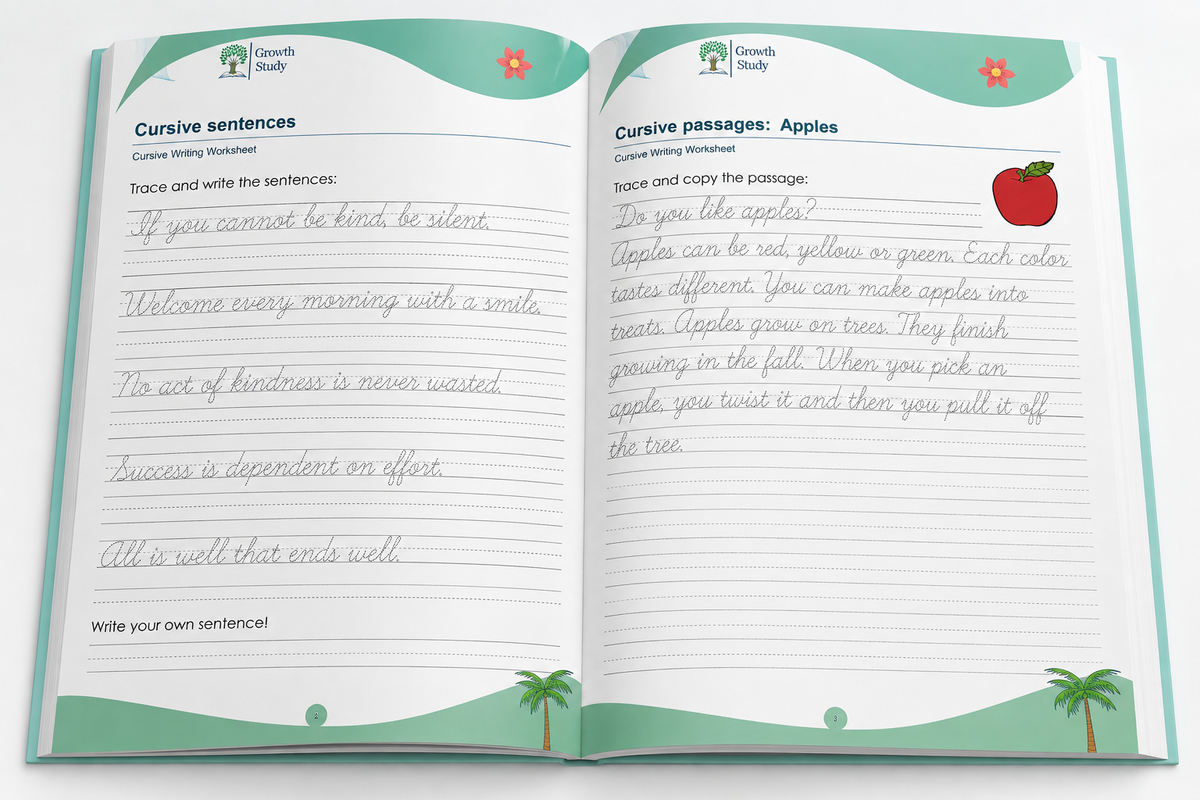 Growth
Study
Cursive sentences
Cursive Writing Worksheet
Trace and write the sentences:
If you cannot be kind, be silent.
Welcome every morning with a smile.
No act of kindness is never wasted.
Success is dependent on effort.
All is well that ends well.
Write your own sentence!
2
Growth
Study
Cursive passages: Apples
Cursive Writing Worksheet
Trace and copy the passage:
Do you like apples?
Apples can be red, yellow or green. Each color
tastes different. You can make apples into
treats. Apples grow on trees. They finish
growing in the fall. When you pick an
apple, you twist it and then you pull it off
the tree.
3